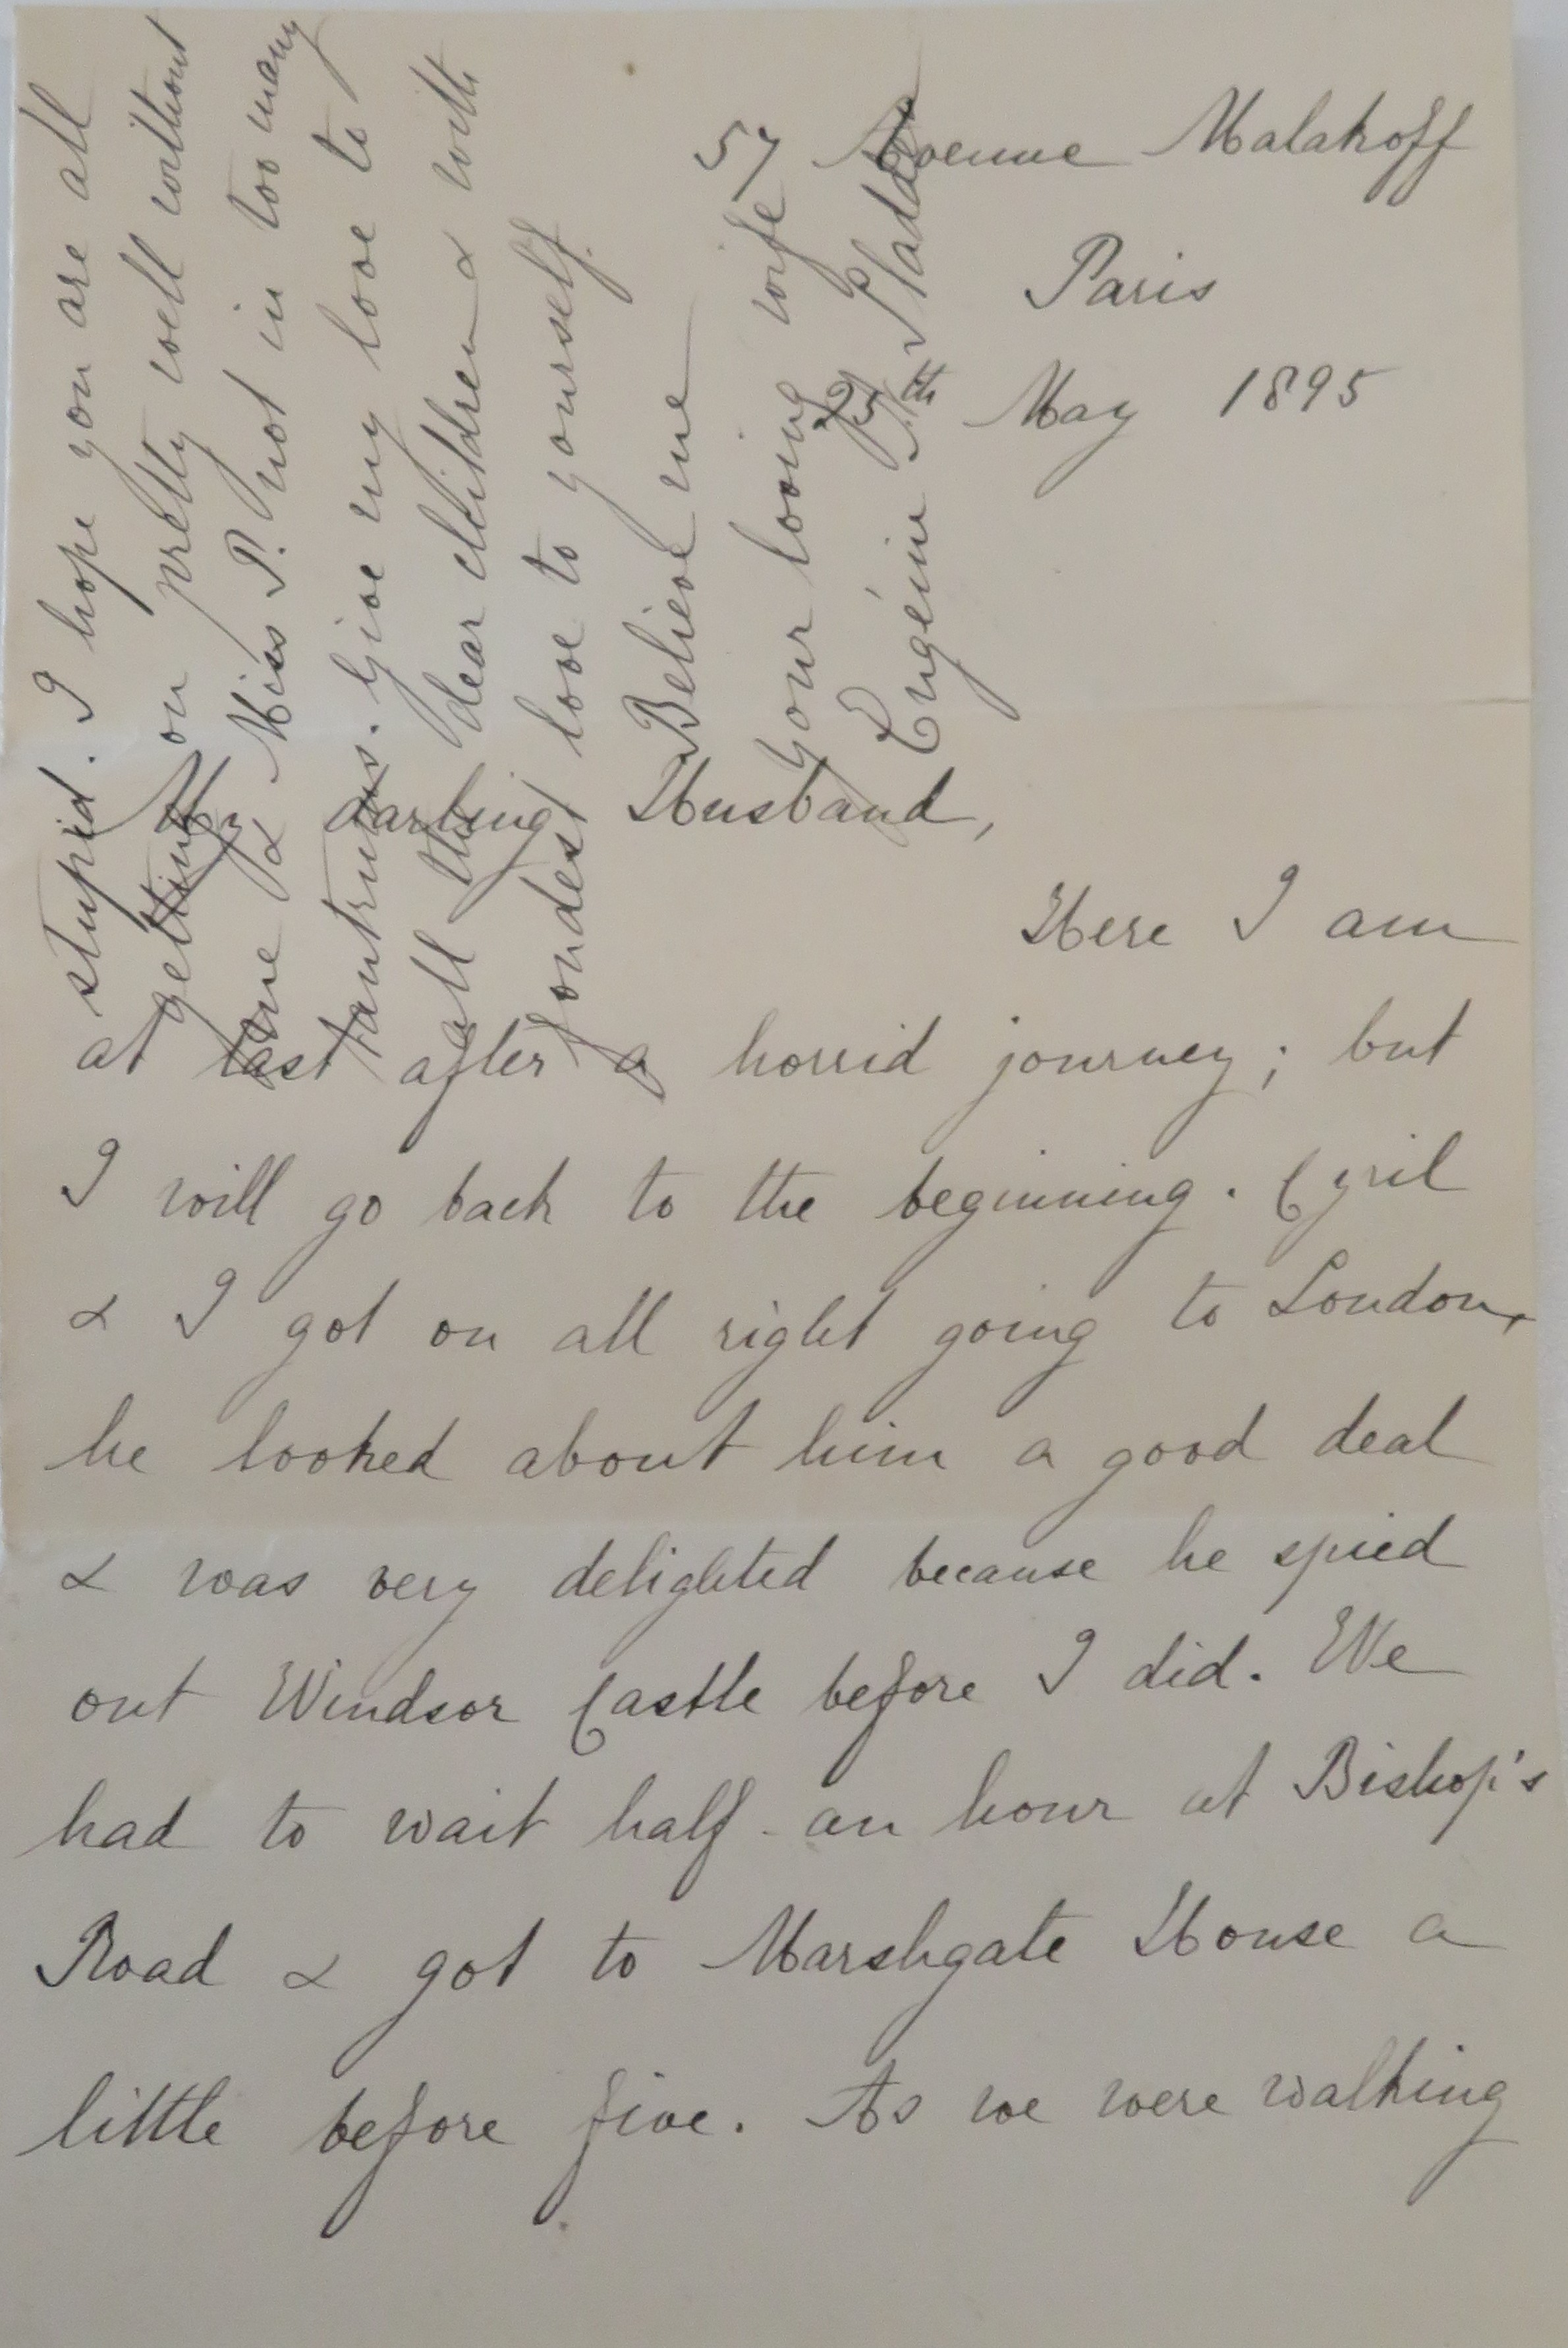 57 Avenue Malakoff
Paris
25th May 1895
My darling Husband,
Here I am
at last after a horrid journey; but
I will go back to the beginning. Cyril
& I got on all right going to London,
he looked about him a good deal
& was very delighted because he spied
out Windsor Castle before I did. We
had to wait half an hour at Bishop's
Road & got to Marshgate House a
little before five. As we were walking
stupid. I hope you are all
getting on pretty well without
me & Miss P. not in too many
tantrums. Give my love to
all the dear children & with
fondest love to yourself.
Believe me
your loving wife